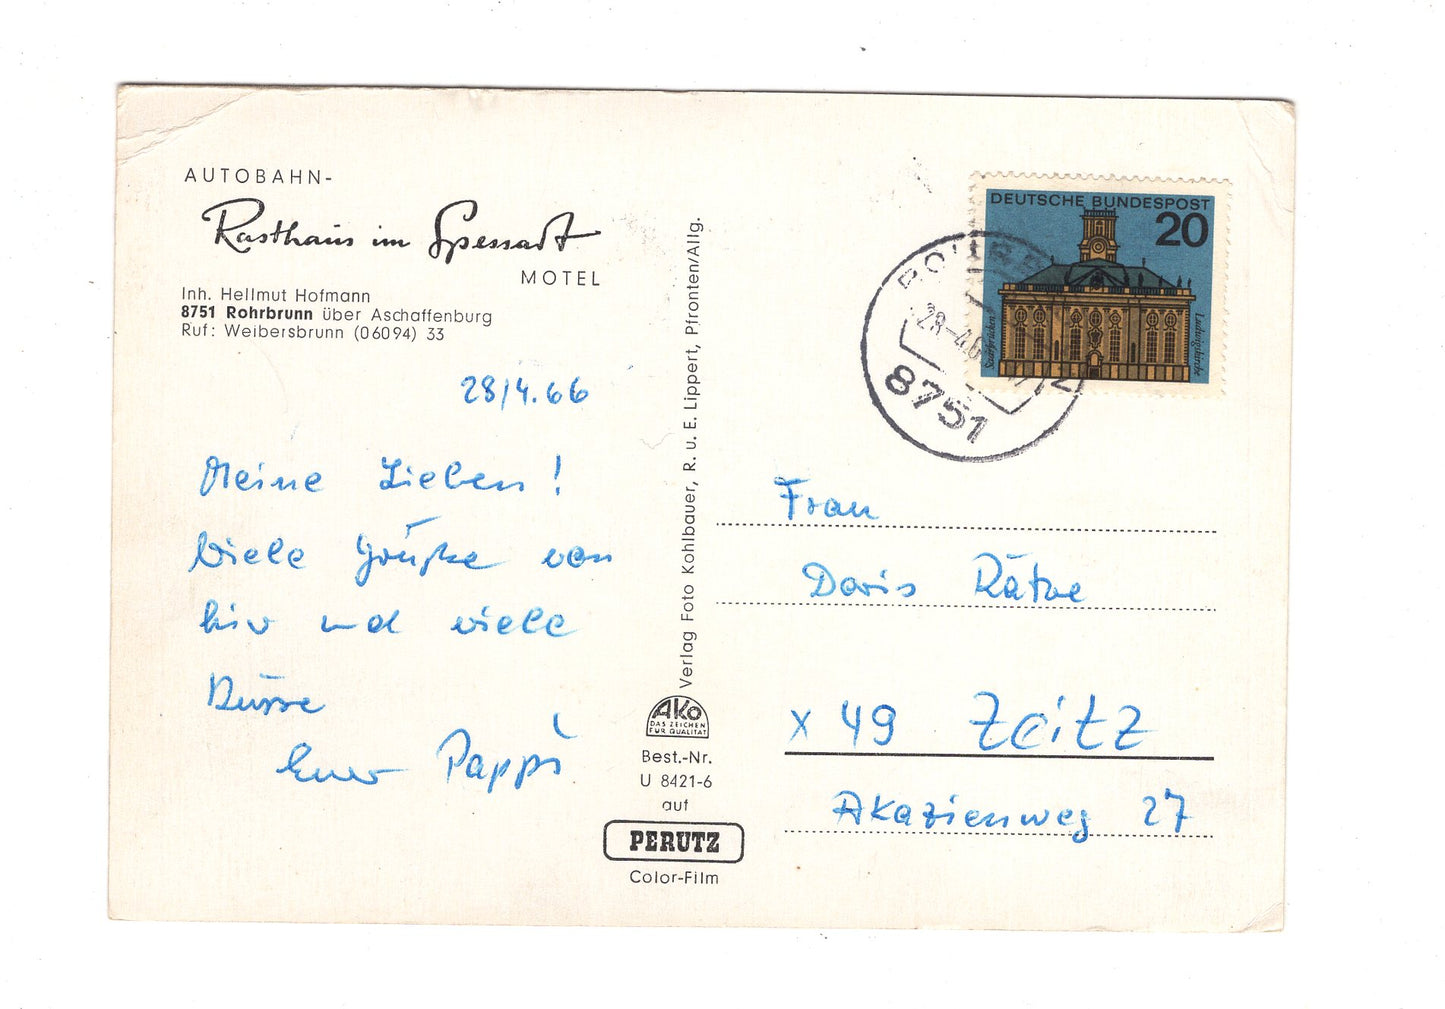 AUTOBAHN-
Rasthaus im Spessart
MOTEL
Inh. Hellmut Hofmann
8751 Rohrbrunn über Aschaffenburg
Ruf: Weibersbrunn (06094) 33
28/4.66
Meine Lieben!
Viele Grüße von
hier und viele
Küsse
Euer Pappi
Verlag Foto Kohlbauer, R. u. E. Lippert, Pfronten/Allg.
AKO
DAS ZEICHEN
FÜR QUALITÄT
Best.-Nr.
U 8421-6
auf
PERUTZ
Color-Film
DEUTSCHE BUNDESPOST
20
Saarbrücken
Ludwigskirche
28.-4.6
8751
Frau
Doris
x 49 Zeitz
Akazienweg 27